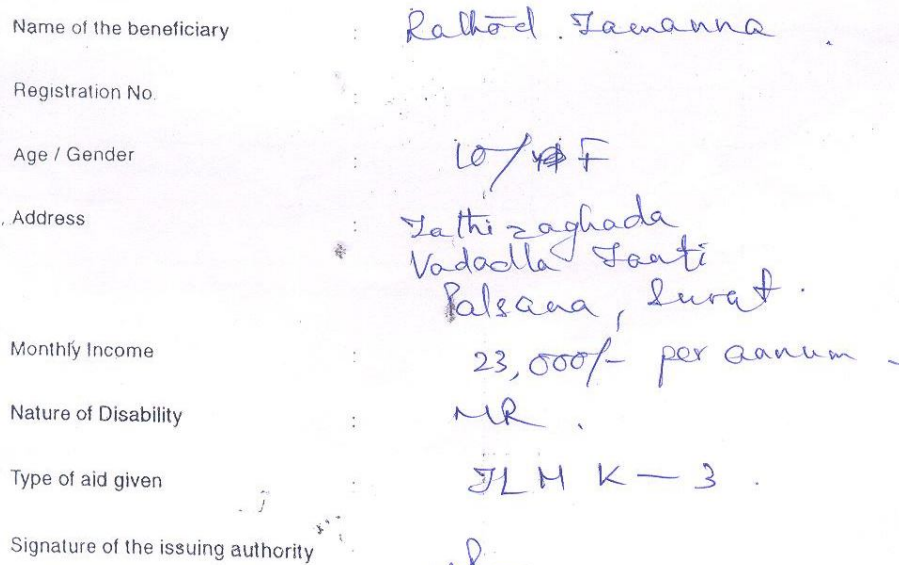 Name of the beneficiary : Rathod Tamanna .
Registration No. :
Age / Gender : 10/ F
Address : 
Vadadla
Palsana, Surat.
Monthly Income : 23,000/- per aanum -
Nature of Disability : MR .
Type of aid given : TLM K - 3 .
Signature of the issuing authority